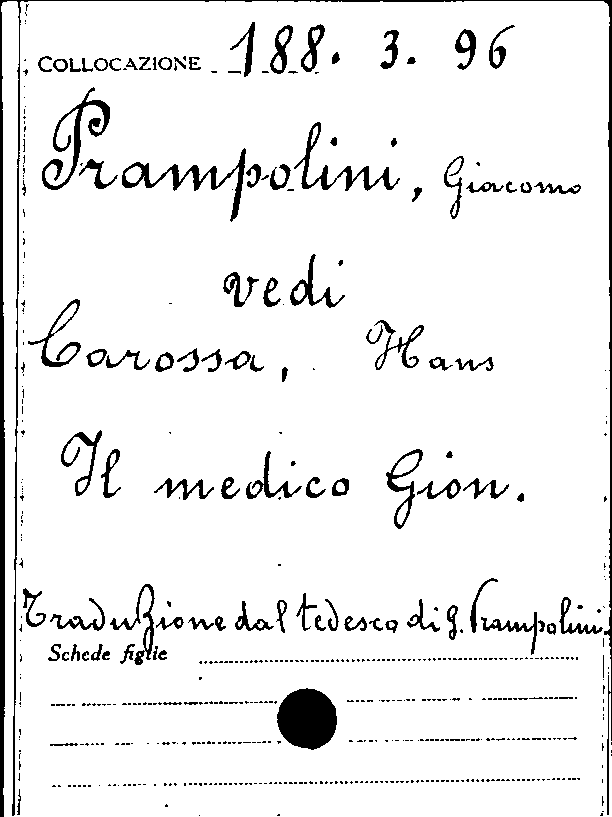 COLLOCAZIONE 188. 3. 96
Prampolini, Giacomo
vedi
Carossa, Hans
Il medico Gion.
Traduzione dal tedesco di G. Prampolini.
Schede figlie